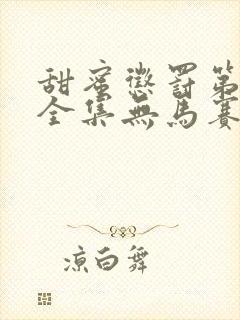 甜蜜懲罰第
全集無馬賽
涼白舞